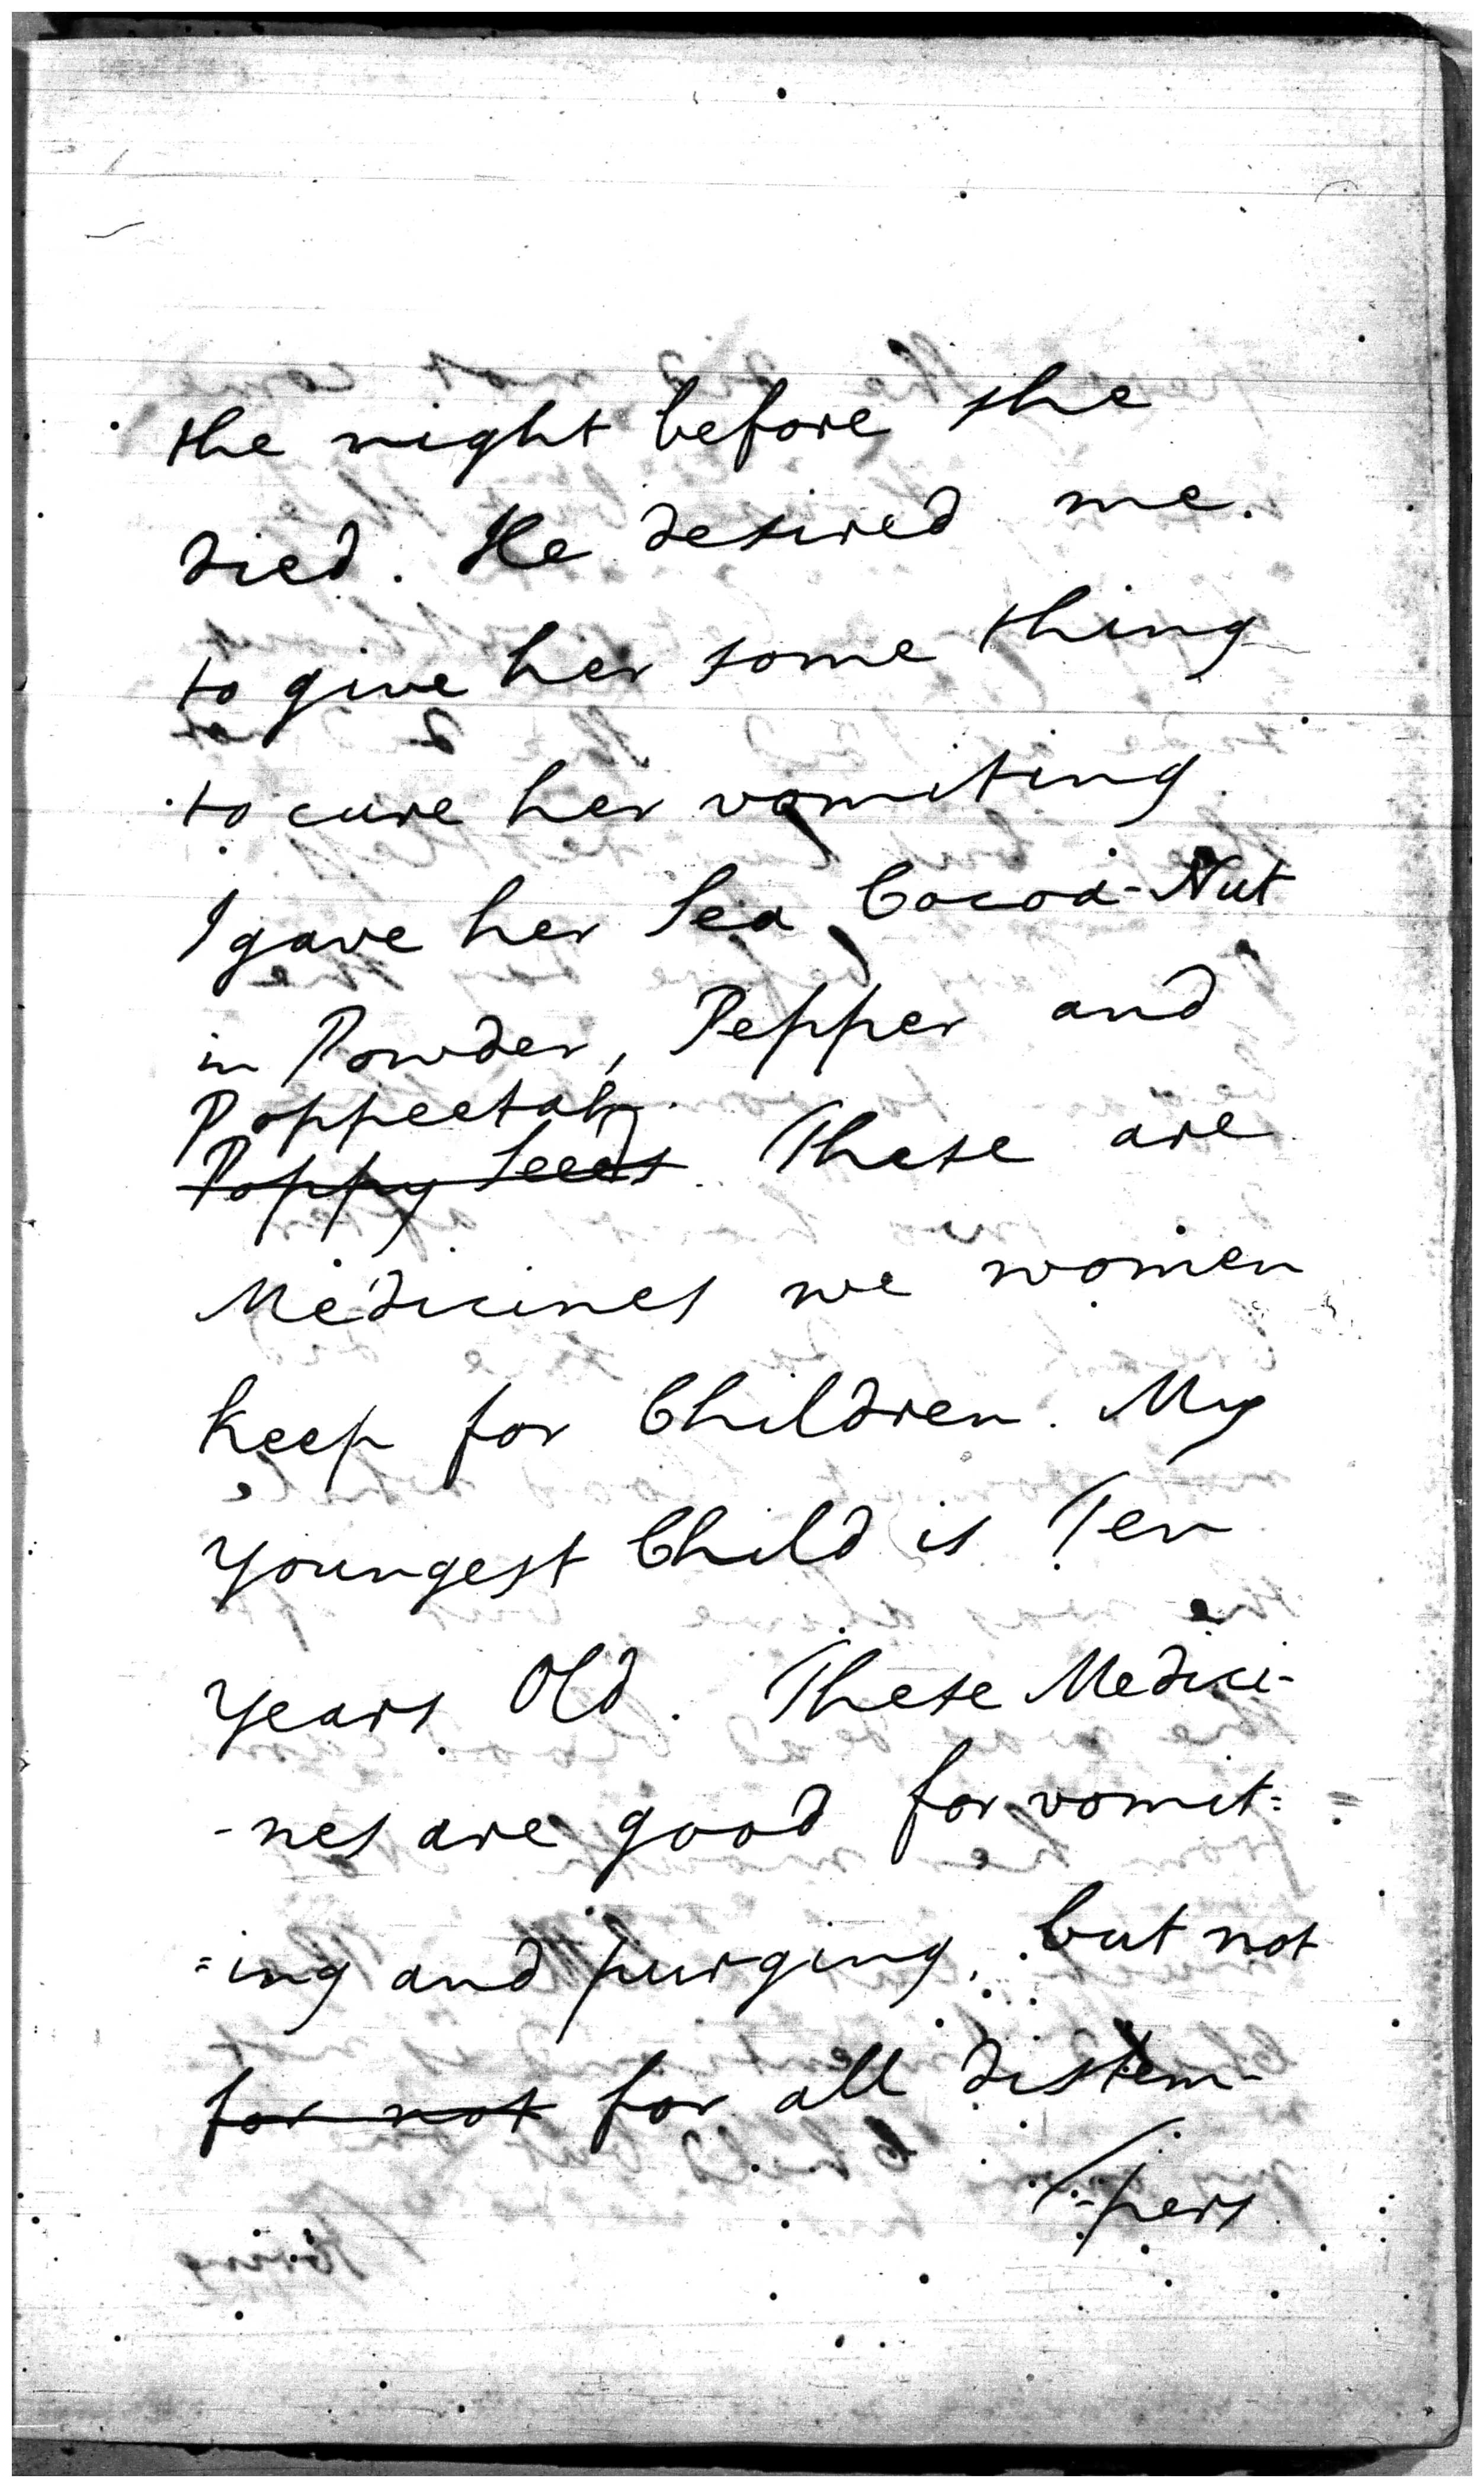 the night before she
died. He desired me.
to give her some thing
to cure her vomiting.
I gave her Sea Cocoa-Nut
in Powder, Pepper and
Poppeetah.
Poppy Seeds. These are
Medicines we women
keep for Children. My
youngest Child is Ten
years Old. These Medici-
-nes are good for vomit=
=ing and purging, but not
for not for all distem-
-pers.